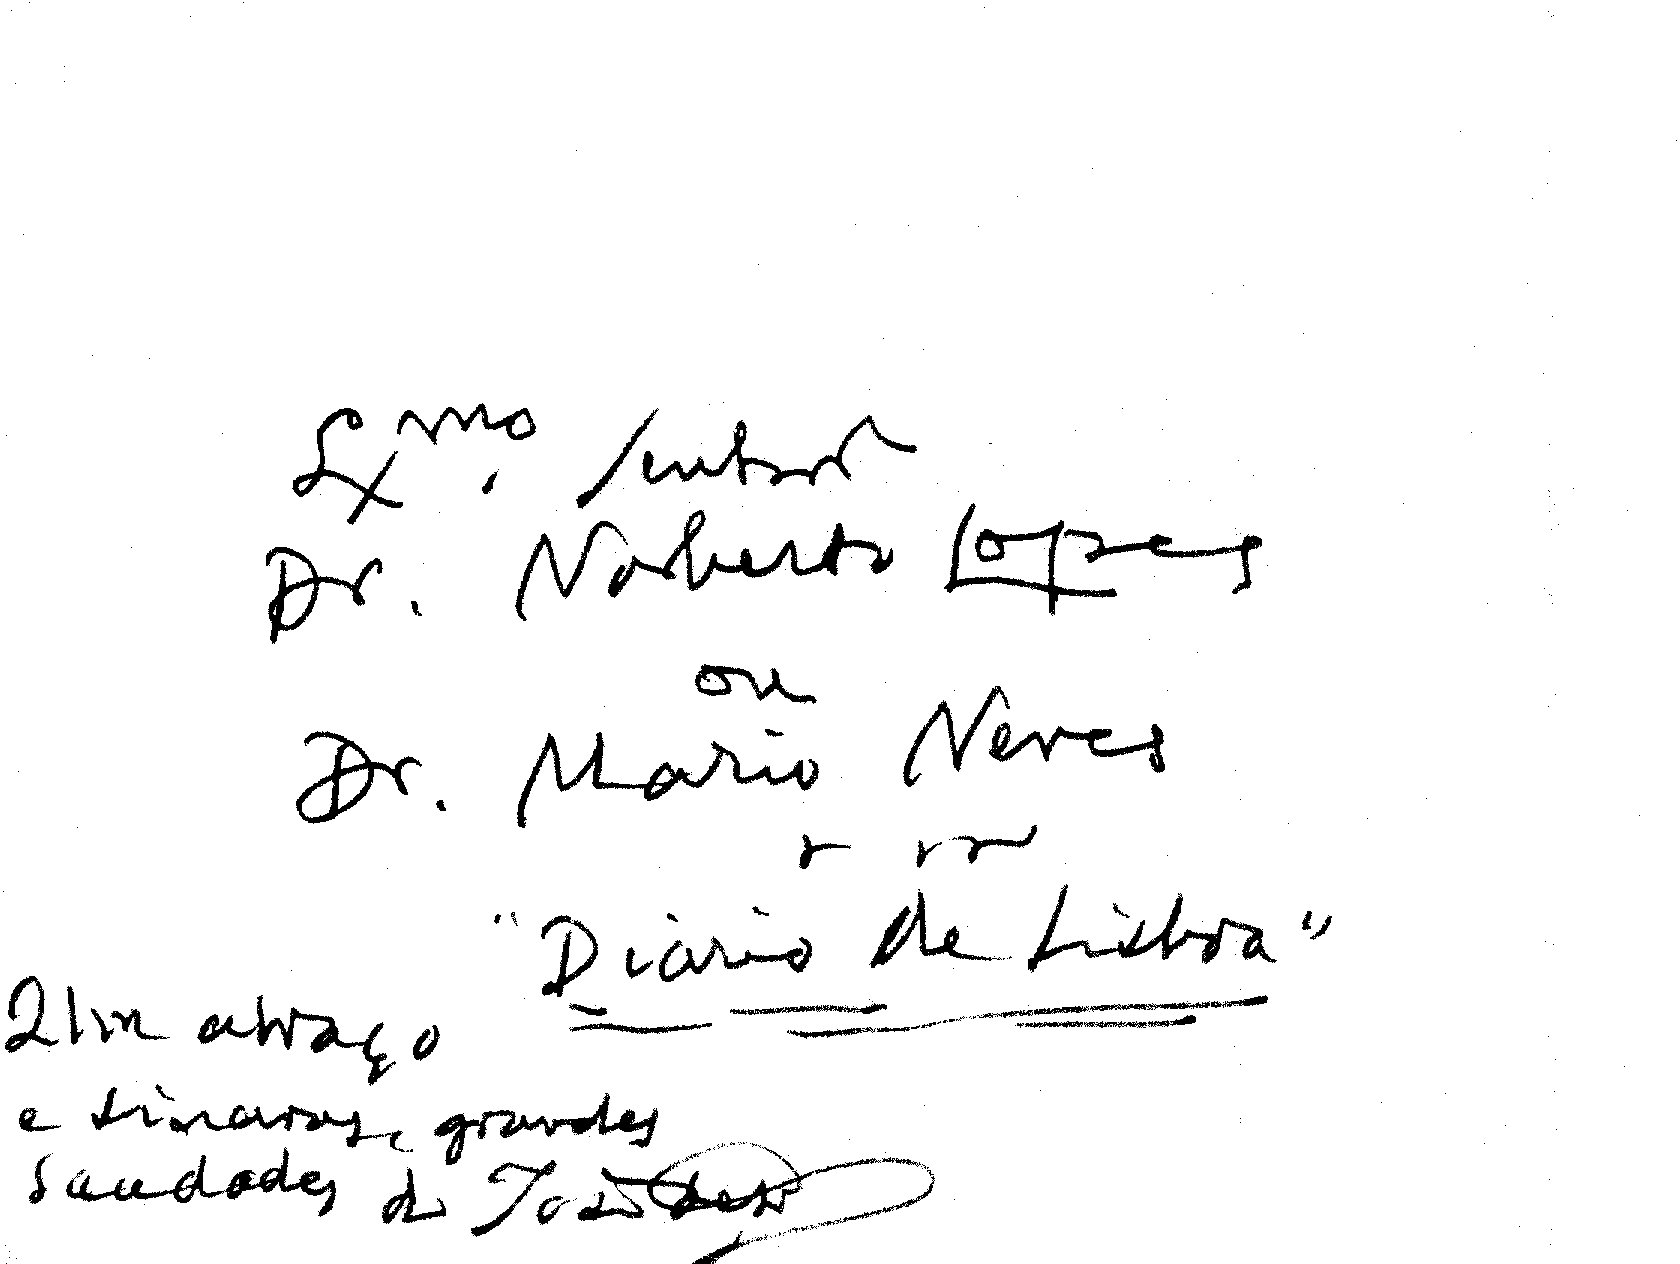 Exmo. Senhor
Dr. Norberto Lopes
ou
Dr. Mario Neves
"Diário de Lisboa"
Um abraço
e sinceras, grandes
saudades de José